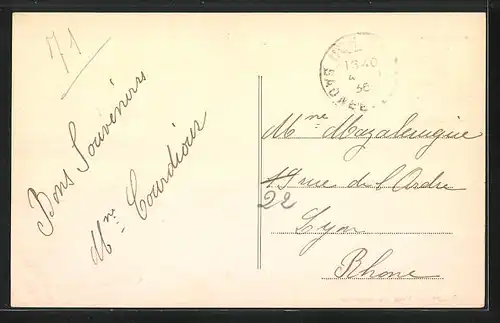 71
Bons Souvenirs
Mme Courdioux
13 40
4
36
SAONE
Mme Mazaleugue
19 rue de l'Ardre
22
Lyon
Rhone